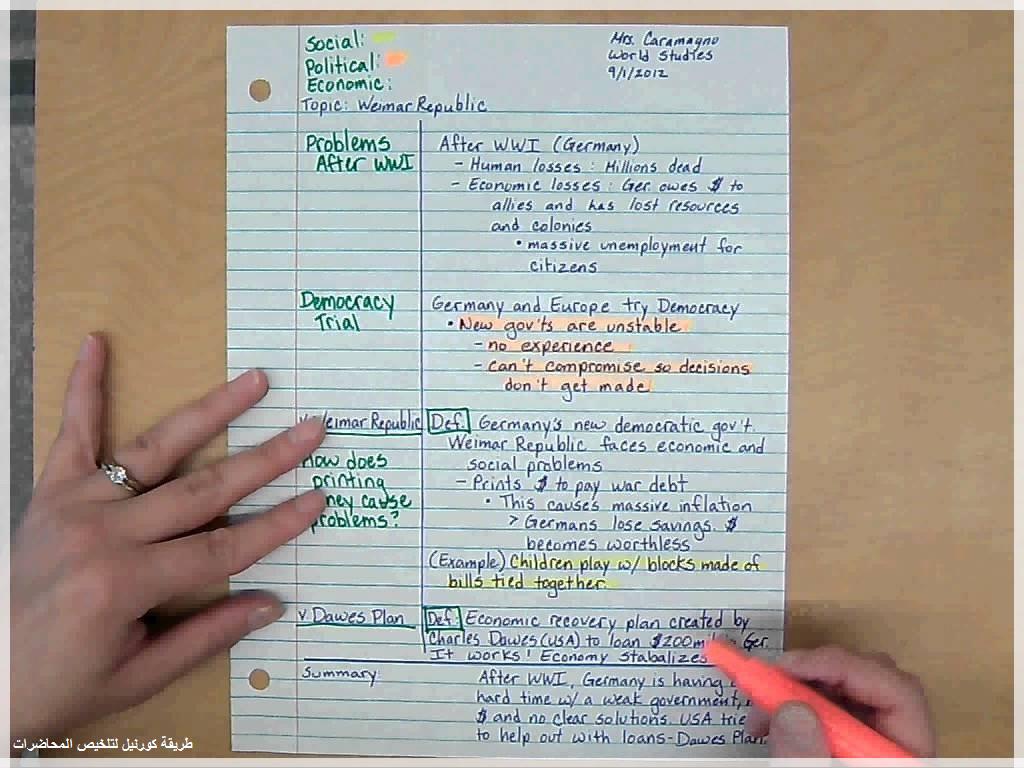 Social:
Political:
Economic:
Mrs. Caramagno
World Studies
9/1/2012
Topic: Weimar Republic
Problems
After WWI
After WWI (Germany)
- Human losses: Millions dead
- Economic losses: Ger. owes $ to
allies and has lost resources
and colonies
• massive unemployment for
citizens
Democracy
Trial
Germany and Europe try Democracy
• New gov'ts are unstable
- no experience
- can't compromise so decisions
don't get made
v Weimar Republic
Def: Germany's new democratic gov't.
Weimar Republic faces economic and
social problems
How does
printing
cause
problems?
- Prints $ to pay war debt
• This causes massive inflation
> Germans lose savings. $
becomes worthless
(Example) Children play w/ blocks made of
bills tied together.
v Dawes Plan
Def: Economic recovery plan created by
Charles Dawes (USA) to loan $200 Ger.
It works! Economy stabalizes
Summary:
After WWI, Germany is having
hard time w/ a weak government,
$ and no clear solutions. USA
to help out with loans-Dawes Plan.
طريقة كورنيل لتلخيص المحاضرات